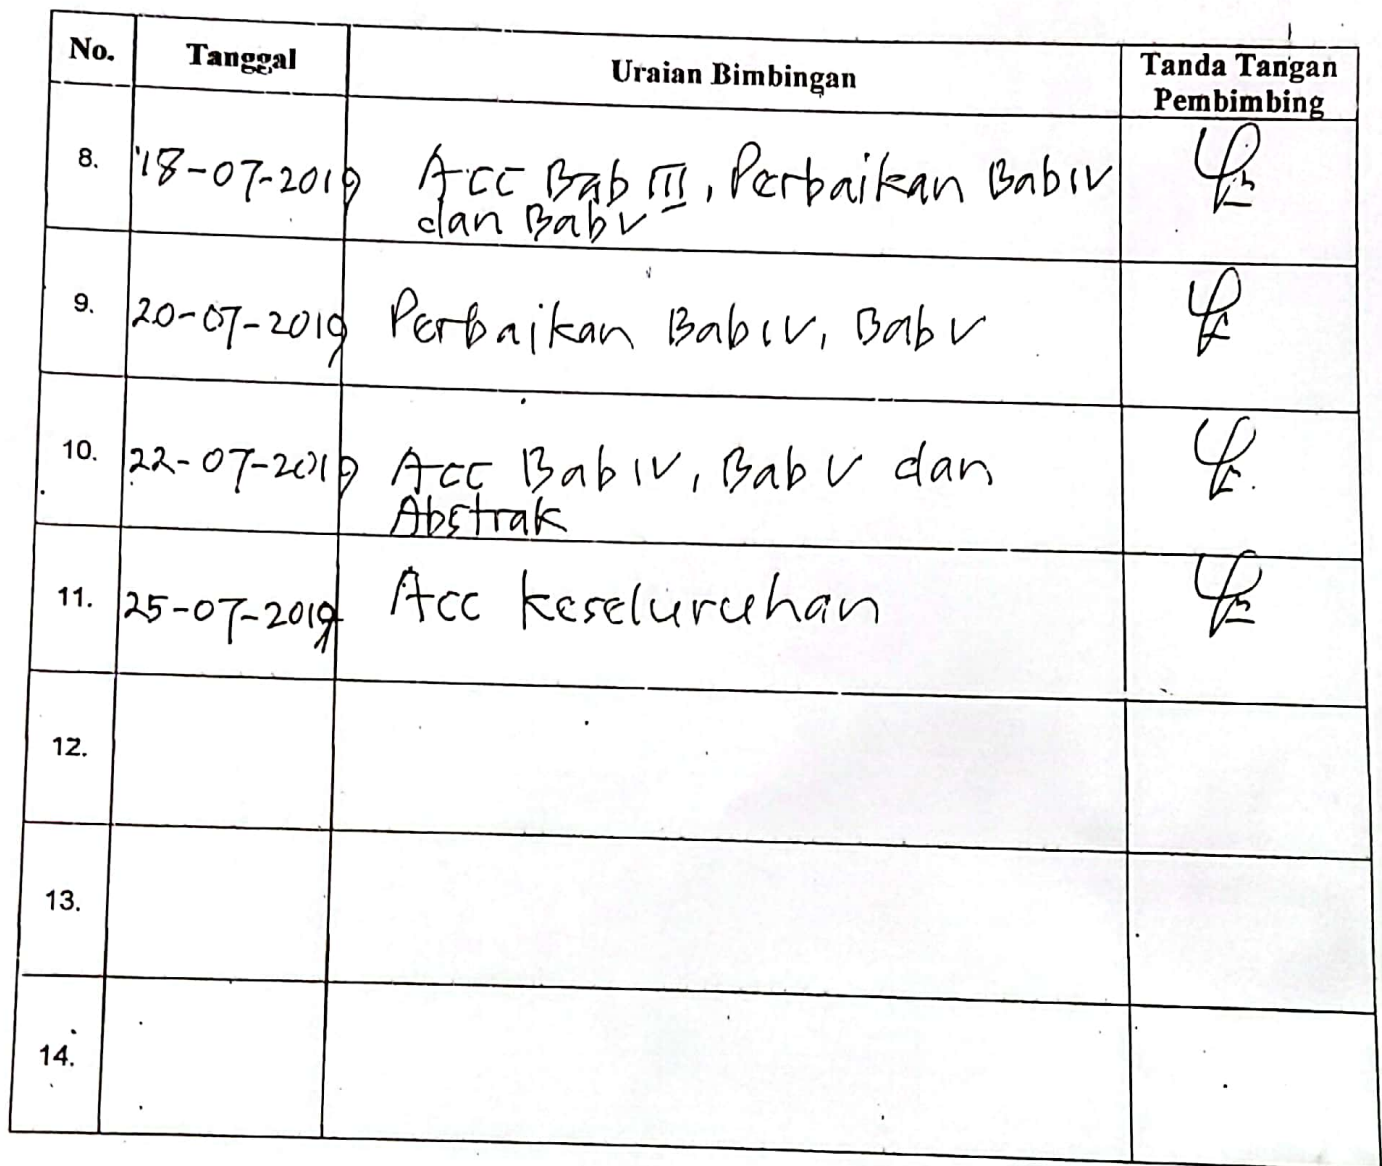 No. Tanggal Uraian Bimbingan Tanda Tangan
Pembimbing
8. 18-07-2019 Acc Bab III, Perbaikan Bab IV
dan Bab V
9. 20-07-2019 Perbaikan Bab IV, Bab V
10. 22-07-2019 Acc Bab IV, Bab V dan
Abstrak
11. 25-07-2019 Acc keseluruhan
12.
13.
14.